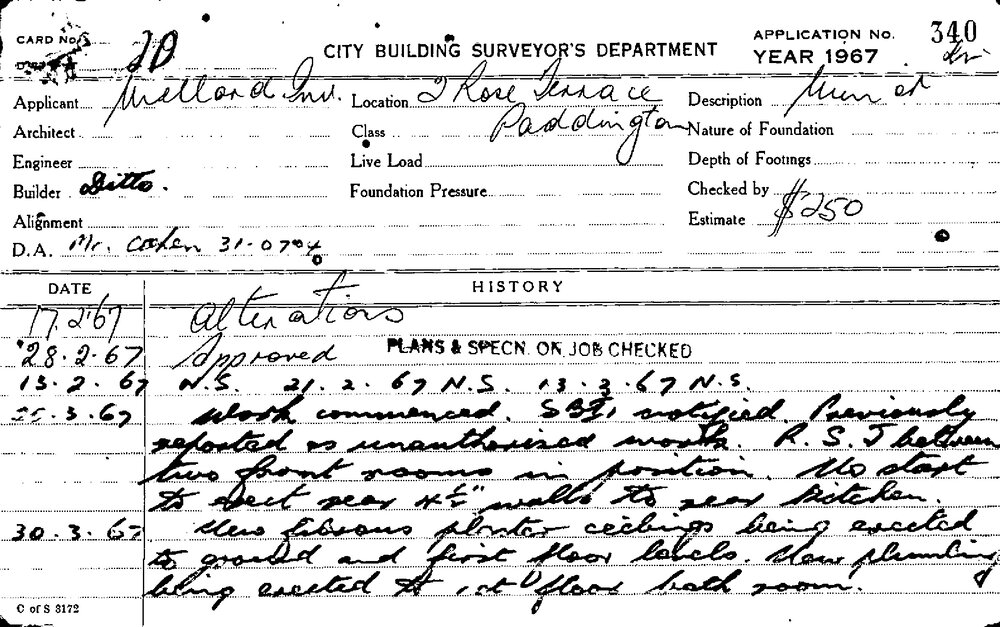 CARD No. 20
CITY BUILDING SURVEYOR'S DEPARTMENT
APPLICATION No. 340
YEAR 1967
Applicant Mallard Inv. Location 2 Rose Terrace Description
Architect Class Paddington Nature of Foundation
Engineer Live Load Depth of Footings
Builder Ditto. Foundation Pressure Checked by
Alignment Estimate $250
D.A. Mr. Cohen 31-0704
DATE HISTORY
17.2.67 Alterations
28.2.67 Approved PLANS & SPECN. ON JOB CHECKED
13.2.67 N.S. 21.2.67 N.S. 13.3.67 N.S.
.3.67 Work commenced. notified. Previously
reported as unauthorised work. R.S.J between
two front rooms in position. No start
to erect rear 4½" walls to rear kitchen.
30.3.67 New fibrous plaster ceilings being erected
to ground and first floor levels. New plumbing
being erected to 1st floor bath room.
C of S 3172